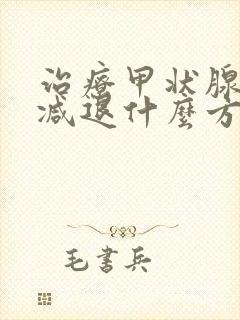 治療甲状腺
減退什麼方
毛書兵